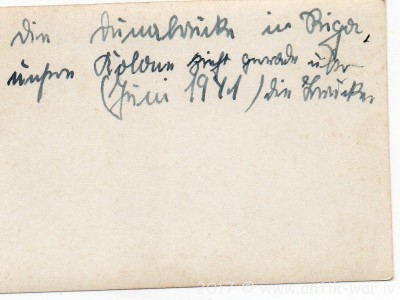 die Dünabrücke in Riga,
unsere Kolone zieht gerade über
(Juni 1941) die Brücke